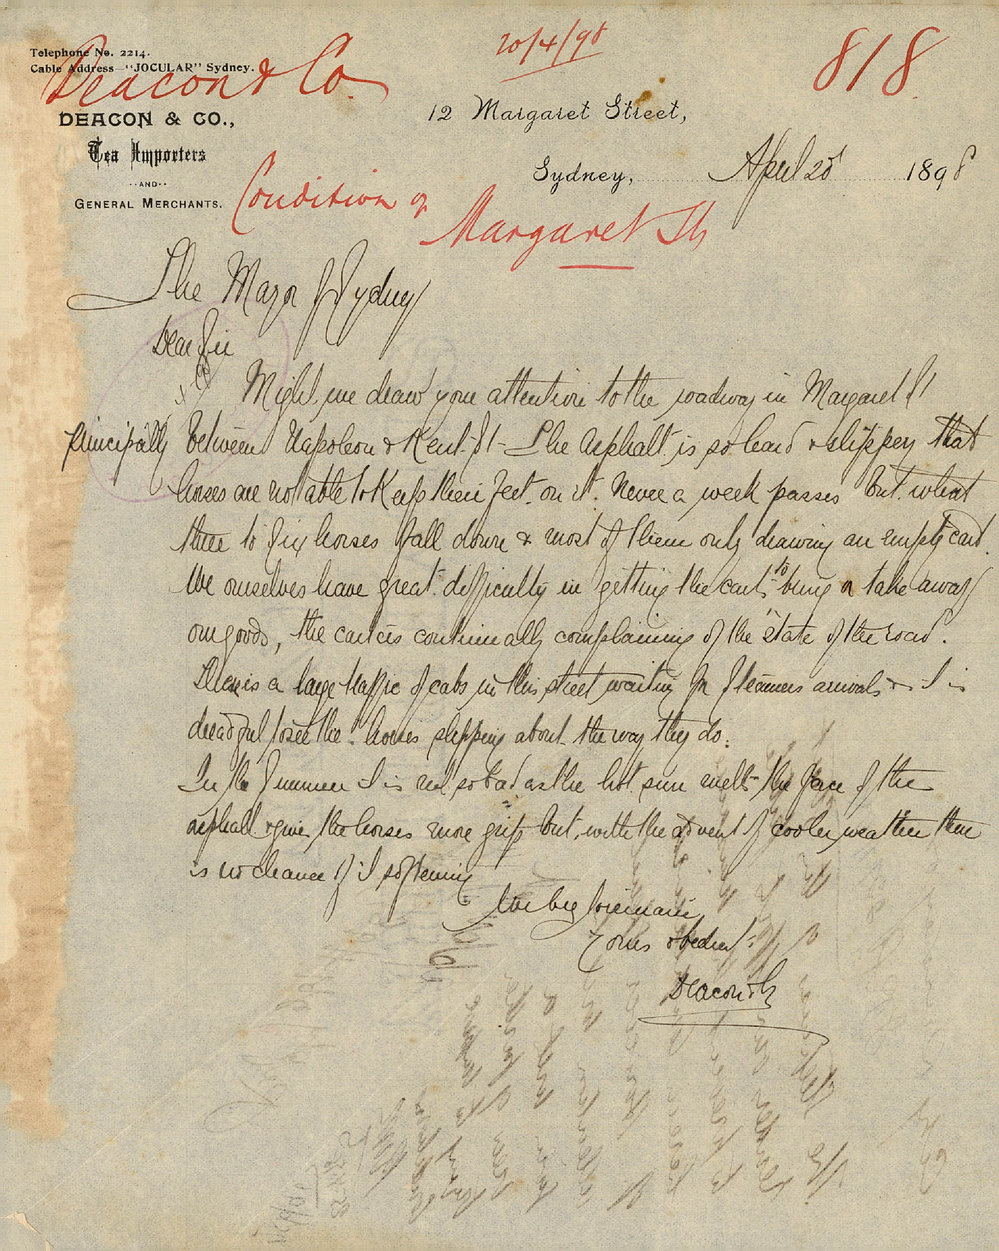 Telephone No. 2214.
Cable Address "JOCULAR" Sydney.
Deacon & Co.
20/4/98
818
DEACON & CO.,
Tea Importers
AND
GENERAL MERCHANTS.
12 Margaret Street,
Sydney, April 20 1898
Condition of
Margaret St
The Mayor of Sydney
Dear Sir
Might we draw your attention to the roadway in Margaret St
principally between Napoleon & Kent St - The asphalt is so hard & slippery that
horses are not able to keep their feet on it. Never a week passes but what
three to six horses fall down & most of them only drawing an empty cart.
We ourselves have great difficulty in getting the carts to bring or take away
our goods, the carters continually complaining of the state of the road.
There is a large traffic of cabs in this street waiting for steamers arrivals & it is
dreadful to see the horses slipping about the way they do.
In the Summer it is not so bad as the hot sun melts the face of the
asphalt & gives the horses more grip but with the advent of cooler weather there
is no chance of it softening
We beg to remain
Yours obedient
Deacon & Co